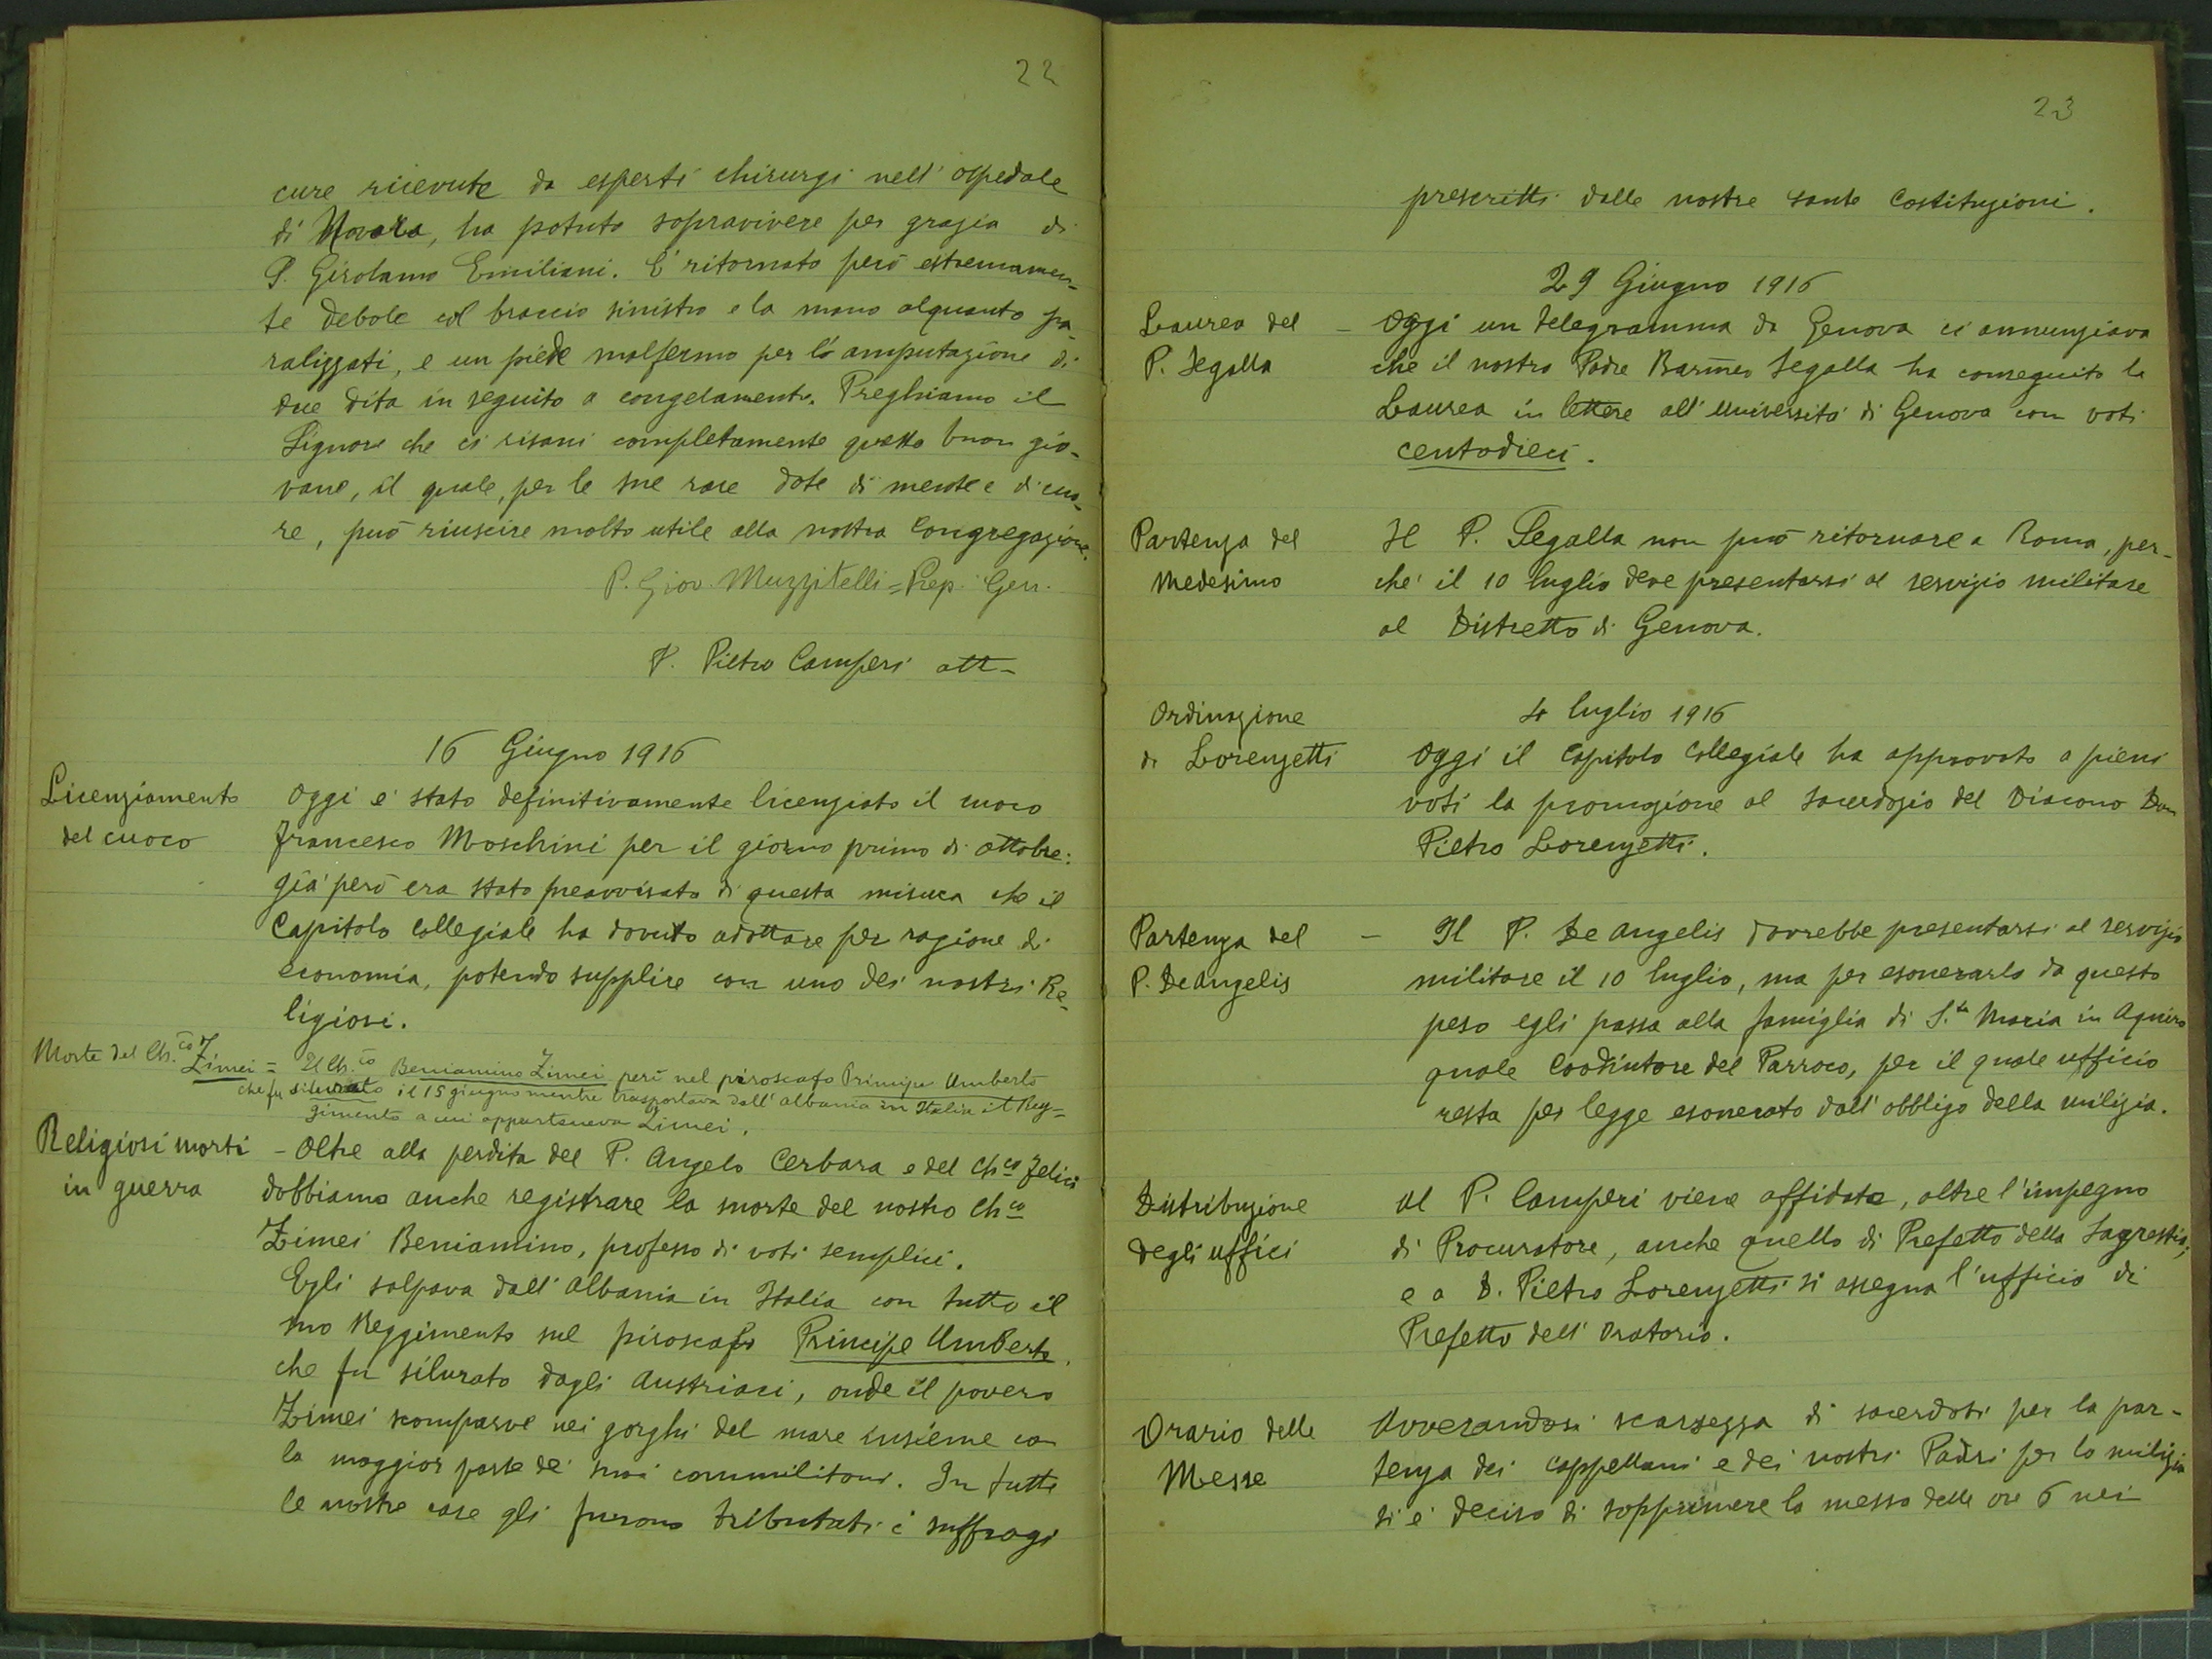 22
cure ricevute da esperti chirurgi nell' ospedale
di Novara, ha potuto sopravivere per grazia di
S. Girolamo Emiliani. E' ritornato però estremamen-
te debole col braccio sinistro e la mano alquanto pa-
ralizzati, e un piede malfermo per l'amputazione di
due dita in seguito a congelamento. Preghiamo il
Signore che ci risani completamente questo buon gio-
vane, il quale, per le sue rare dote di mente e di cuo-
re, può riuscire molto utile alla nostra Congregazione.
P. Giov. Muzzitelli = Prep. Gen.
P. Pietro Camperi att-
16 Giugno 1916
Licenziamento
del cuoco
Oggi e' stato definitivamente licenziato il cuoco
Francesco Moschini per il giorno primo di ottobre:
già però era stato preavvisato di questa misura che il
Capitolo Collegiale ha dovuto adottare per ragione di
economia, potendo supplire con uno dei nostri Re-
ligiosi.
Morte del Ch.co Zimei = Il Ch.co Beniamino Zimei perì nel piroscafo Principe Umberto
che fu silurato il 15 giugno mentre trasportava dall' Albania in Italia il Reg-
gimento a cui apparteneva Zimei.
Religiosi morti
in guerra
- Oltre alla perdita del P. Angelo Cerbara e del Chco Felici
dobbiamo anche registrare la morte del nostro Chco
Zimei Beniamino, professo di voti semplici.
Egli salpava dall' Albania in Italia con tutto il
suo Reggimento sul piroscafo Principe Umberto,
che fu silurato dagli Austriaci, onde il povero
Zimei scomparve nei gorghi del mare insieme con
la maggior parte de' suoi commilitoni. In tutte
le nostre case gli furono tributati i suffragi
23
prescritti dalle nostre sante Costituzioni.
29 Giugno 1916
Laurea del
P. Segalla
- Oggi un telegramma da Genova ci annunziava
che il nostro Padre Barmeo Segalla ha conseguito la
Laurea in lettere all' Università di Genova con voti
centodieci.
Partenza del
Medesimo
Il P. Segalla non può ritornare a Roma, per-
che' il 10 luglio deve presentarsi al servizio militare
al Distretto di Genova.
Ordinazione
di Lorenzetti
4 luglio 1916
Oggi il Capitolo Collegiale ha approvato a pieni
voti la promozione al sacerdozio del Diacono Don
Pietro Lorenzetti.
Partenza del
P. De Angelis
- Il P. De Angelis dovrebbe presentarsi al servizio
militare il 10 luglio, ma per esonerarlo da questo
peso egli passa alla famiglia di S.ta Maria in Aquiro
quale Coadiutore del Parroco, per il quale ufficio
resta per legge esonerato dall' obbligo della milizia.
Distribuzione
degli uffici
Al P. Camperi viene affidato, oltre l'impegno
di Procuratore, anche quello di Prefetto della Sagrestia;
e a D. Pietro Lorenzetti si assegna l'ufficio di
Prefetto dell' Oratorio.
Orario delle
Messe
Avverandosi scarsezza di sacerdoti per la par-
tenza dei cappellani e dei nostri Padri per la milizia
si e' deciso di sopprimere la messa delle ore 6 nei